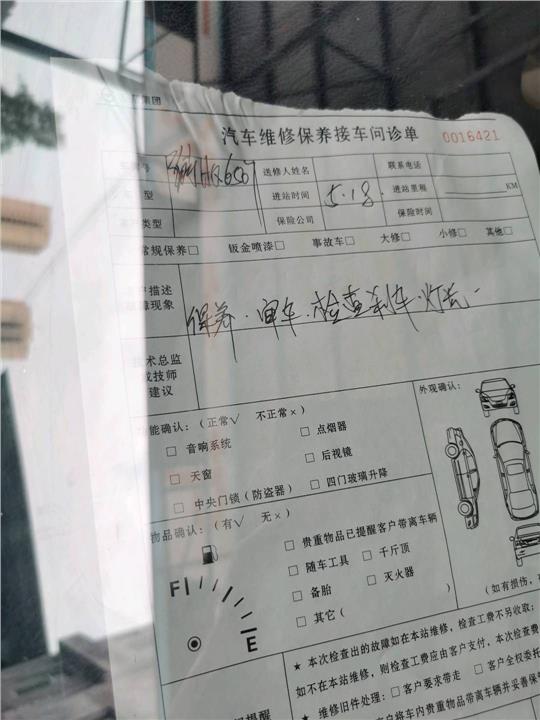 集团
汽车维修保养接车问诊单
0016421
号 HQ656 送修人姓名 联系电话
型 进站时间 5.18. 进站里程 KM
类型 保险公司 保险时间
常规保养□ 钣金喷漆□ 事故车□ 大修□ 小修□ 其他□
描述
故障现象
保养.审车.检查刹车.灯光.
技术总监
或技师
建议
功能确认：(正常√ 不正常×)
外观确认：
□ 音响系统 □ 点烟器
□ 天窗 □ 后视镜
□ 中央门锁（防盗器） □ 四门玻璃升降
物品确认：(有√ 无×)
□ 贵重物品已提醒客户带离车辆
□ 随车工具 □ 千斤顶
□ 备胎 □ 灭火器
□ 其它（ ）
F
E
(如有损伤，
★ 本次检查出的故障如在本站维修，检查工费不另收取；
如不在本站维修，则检查工费应由客户支付，本次检查费
★ 维修旧件处理：□ 客户要求带走 □ 客户全权委托
客户将车内贵重物品带离车辆并妥善保
提醒